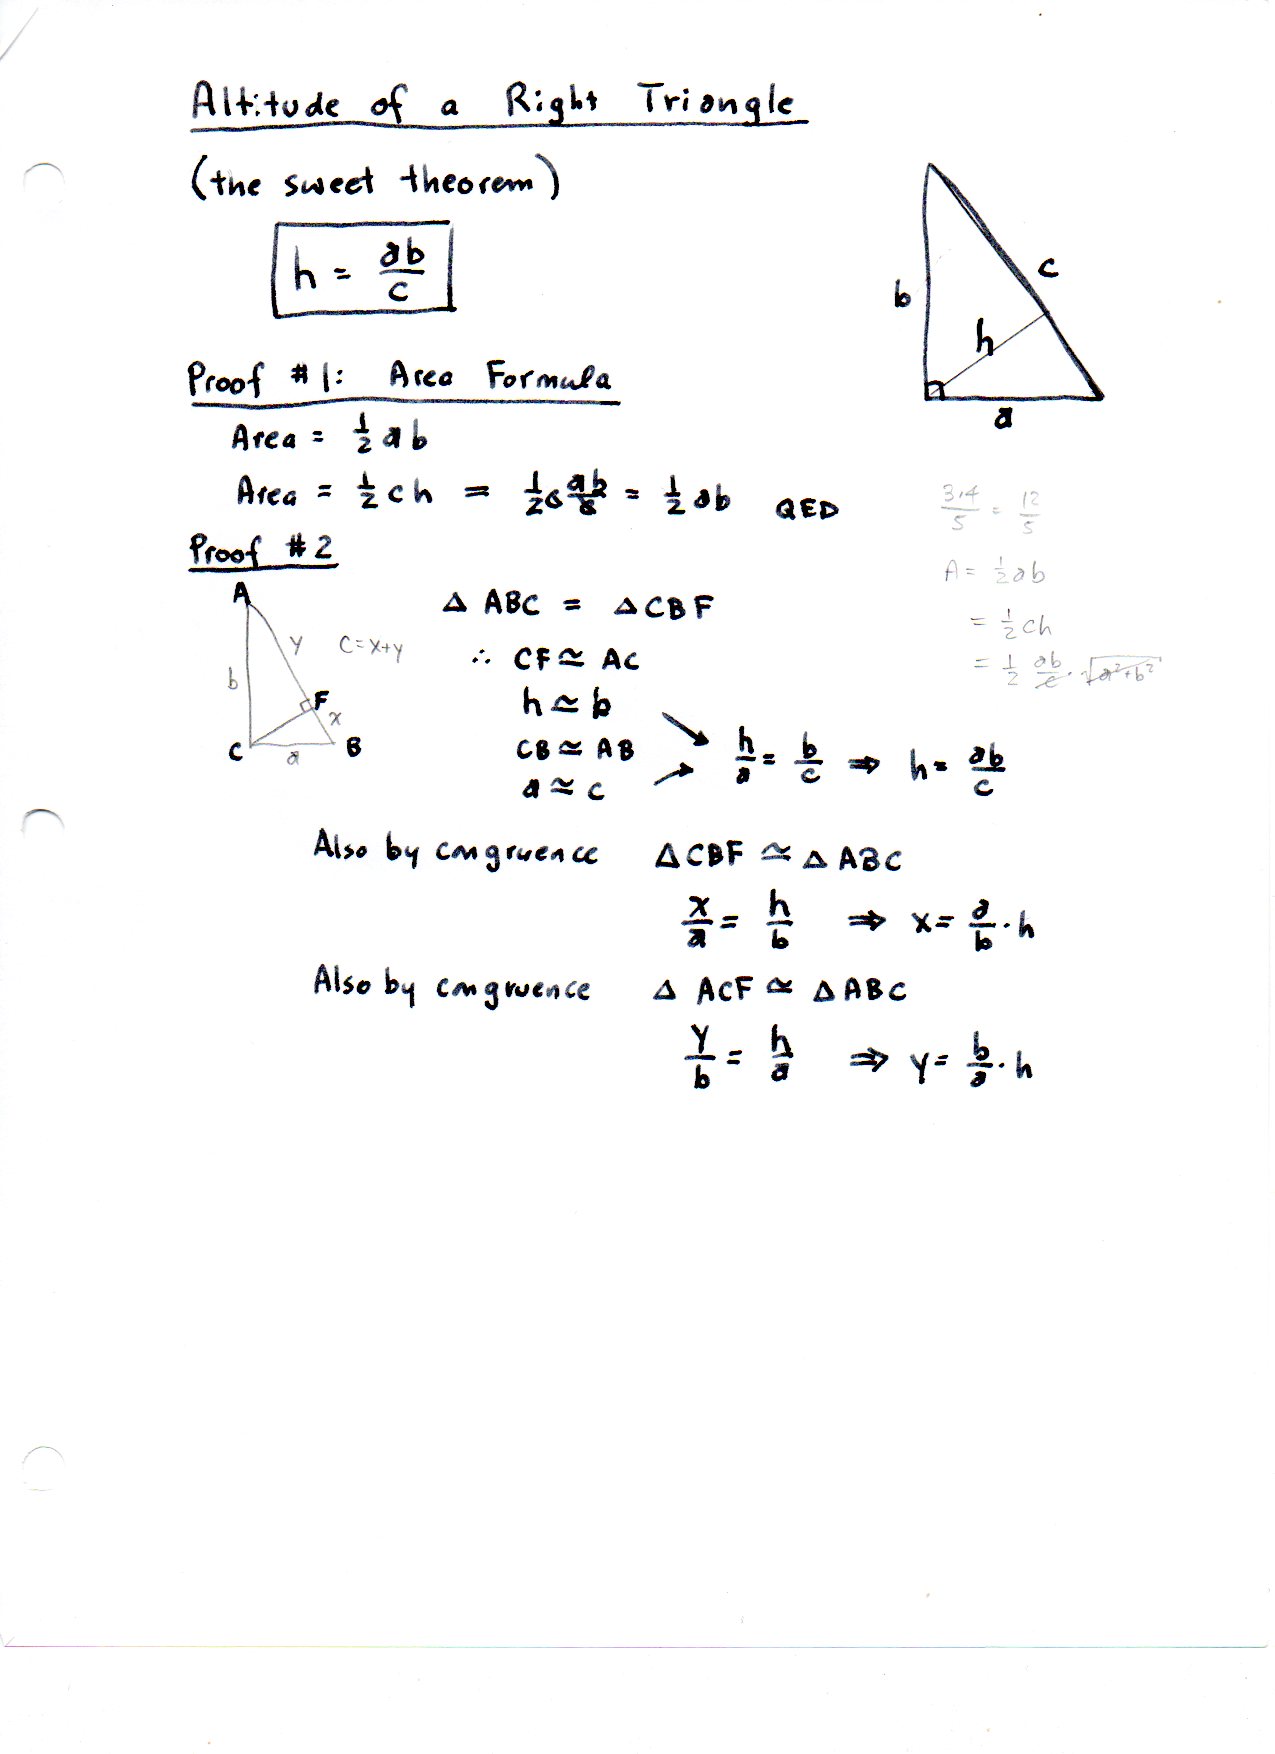 Altitude of a Right Triangle
(the sweet theorem)
h = ab/c
b
c
h
a
Proof #1: Area Formula
Area = 1/2 ab
Area = 1/2 ch = 1/2 c ab/c = 1/2 ab QED
3·4/5 = 12/5
A = 1/2 ab
= 1/2 ch
= 1/2 ab/c · √a²+b²
Proof #2
A
y
C=x+y
b
F
x
C
a
B
Δ ABC = Δ CBF
∴ CF ≅ AC
h ≃ b
CB ≅ AB
a ≃ c
h/a = b/c ⇒ h = ab/c
Also by congruence Δ CBF ≅ Δ ABC
x/a = h/b ⇒ x = a/b · h
Also by congruence Δ ACF ≅ Δ ABC
y/b = h/a ⇒ y = b/a · h